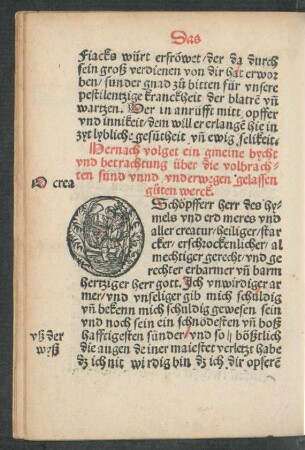 Das
Fiacks würt erfröwet/der da durch
sein groß verdienen von dir hat erwor
ben/sunder gnad zů bitten für vnsere
pestilentzige kranckheit der blatrẽ vñ
wartzen. Der in anrüfft mitt opffer
vnd innikeit/dem will er erlangẽ hie in
zyt lybliche gesütheit vñ ewig selikeit.
Hernach volget ein gmeine bycht
vnd betrachtung über die volbrach-
ten sünd vnnd vnderwegen gelassen
gůten werck.
O crea
Schöpfferr herr des hy-
mels vnd erd meres vnd
aller creatur/heiliger/star
cker/erschrockenlicher/al
mechtiger gerecht/vnd ge
rechter erbarmer vñ barm
hertziger herr gott. Ich vnwirdiger ar
mer/vnd vnseliger gib mich schuldig
vñ bekenn mich schuldig gewesen sein
vnd noch sein ein schnödesten vñ boß
hafftigesten sünder/vnd so bößtlich
die augen deiner maiestet verletzt habe
vß der
wyß
dz ich nit wirdig bin dz ich dir opferẽ